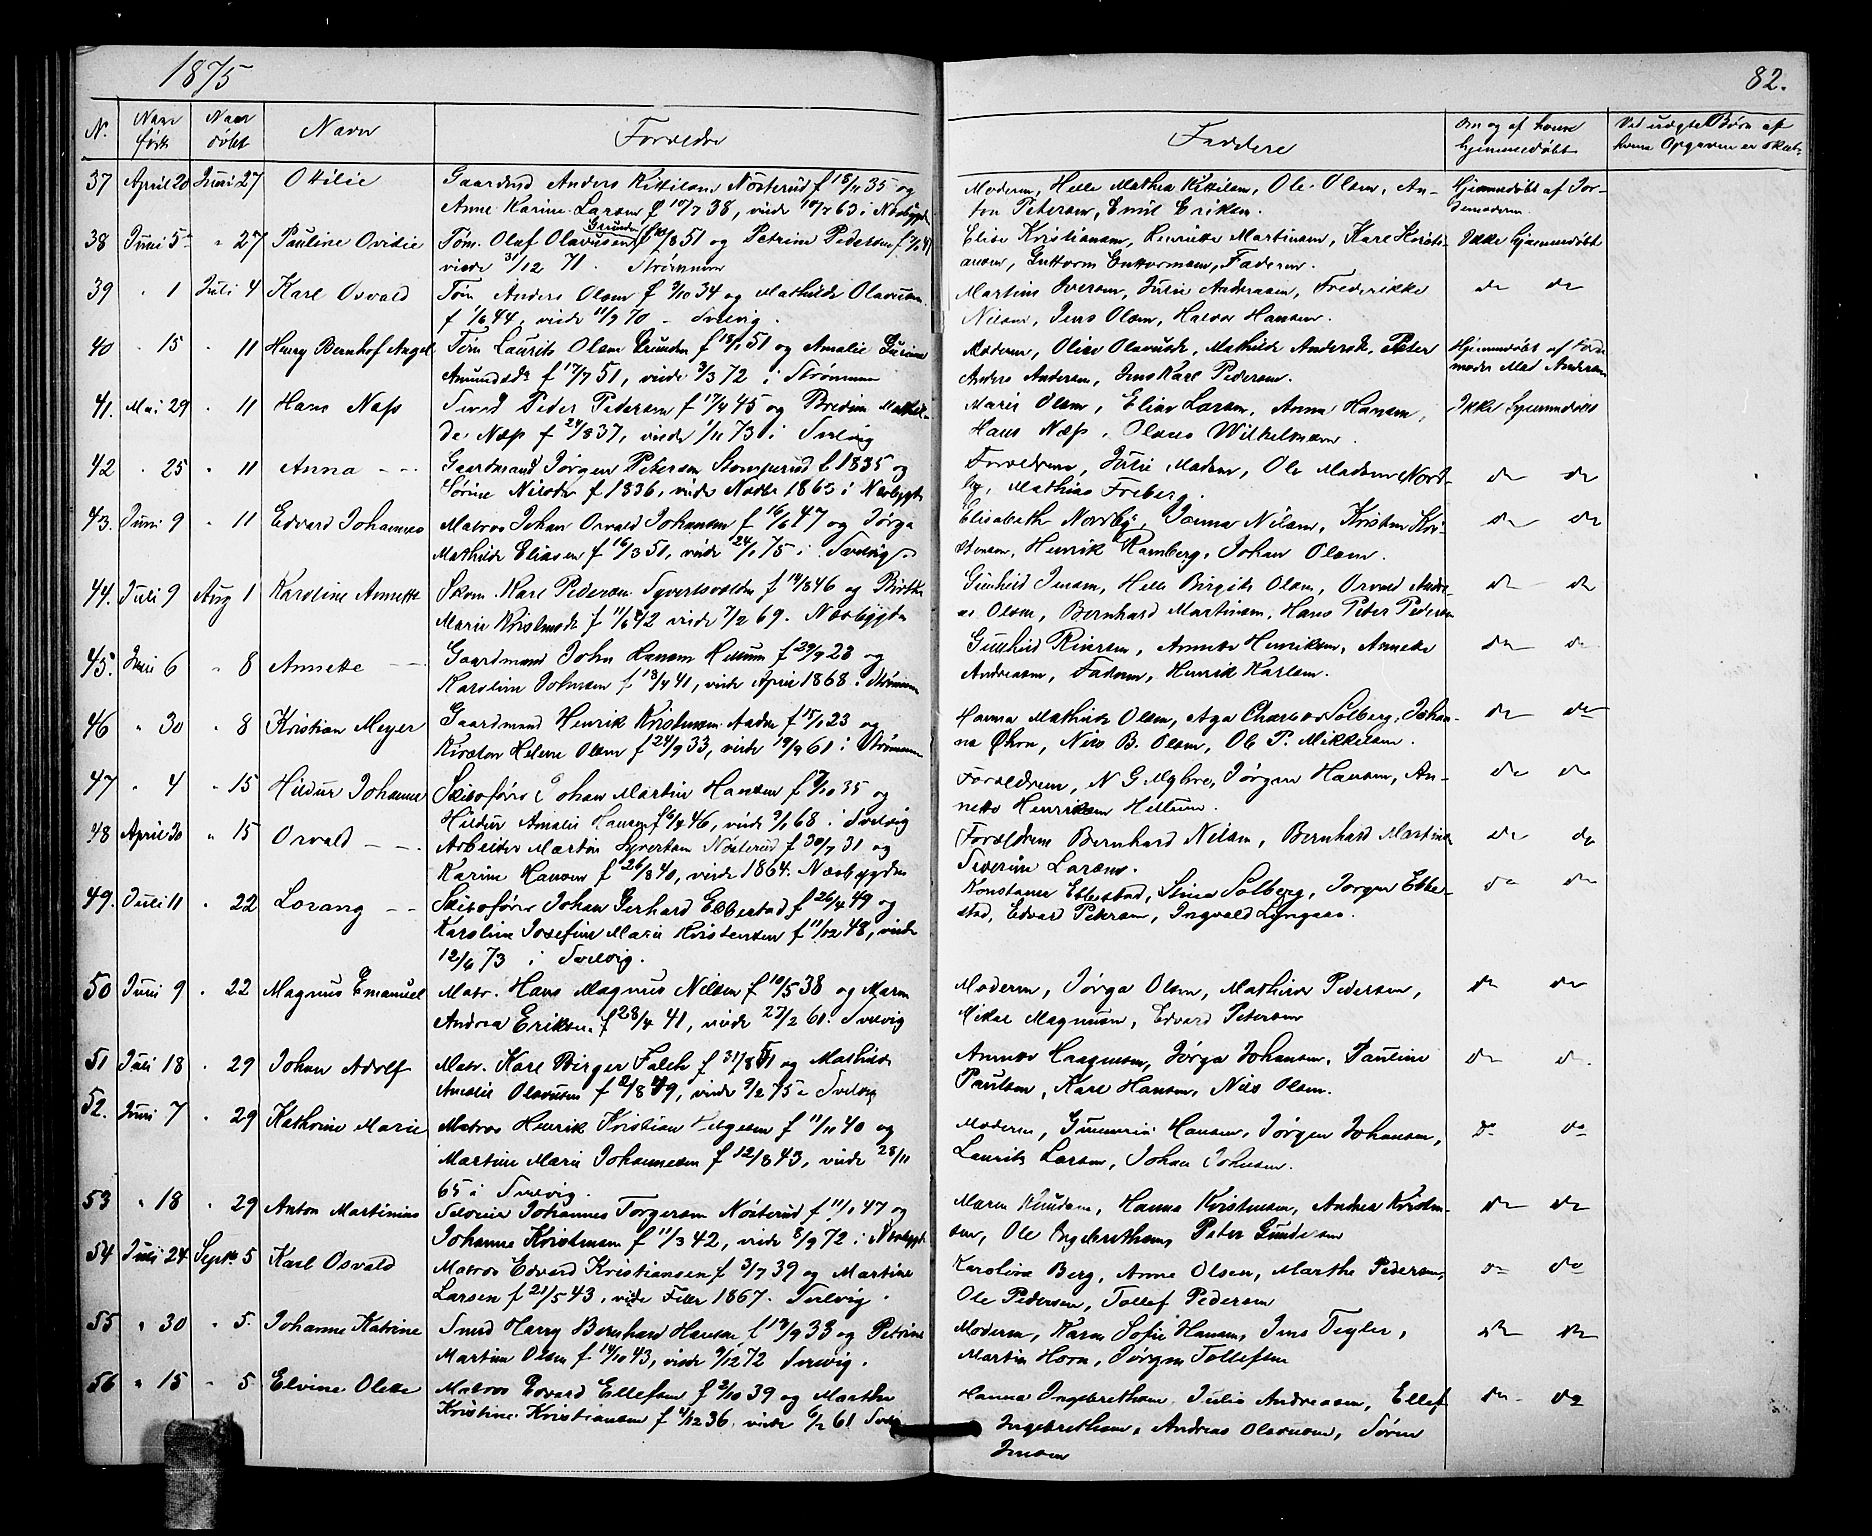 1875
82.
N. Naar født Naar døbt Navn Forældre
Faddere Om og af hvem hjemmedøbt Ved uægte Børn af hvem Opgaven er skeet
37 April 20 Juni 27 Otilie Gaardmd Anders Kittilsen Nøsterud f 18/11 35 og
Anne Karine Larsen f 10/7 38, viede 10/7 63 i Nesbygd
Moderen, Helle Mathea Kittilsen, Ole Olsen, An-
ton Petersen, Emil Eriksen. Hjemmedøbt af Jor-
demoderen
38 Juni 5 " 27 Pauline Ovidie Tøm. Olaf Olavesen Grunden 51 og Petrine Pedersen
viede 31/12 71. Strømmen
Elise Kristiansen, Henriette Martinsen, Karl Kristi-
ansen, Guttorm Guttormsen, Faderen. Ikke hjemmedøbt
39 " 1 Juli 4 Karl Osvald Tøm Anders Olsen f 9/10 34 og Mathilde Olavesen
f 1/6 44, viede 11/9 70 - Svelvig.
Martine Iversen, Julie Andreasen, Frederikke
Nilsen, Jens Olsen, Halvor Hansen. do do
40 " 15 " 11 Henry Bernhof Angel Tøm Laurits Olsen Grunden f 18/1 51 og Amalie
Amundsdt f 17/7 51, viede 3/3 72 i Strømmen
Moderen, Olise Olavusdt, Mathilde Andersdt, Peter
Anders Andersen, Jens Karl Pedersen. Hjemmedøbt af Jorde
moder Mad Andersen
41. Mai 29 " 11 Hans Næss Svend Peder Pedersen f 17/4 45 og Bredine Mathil-
de Næss f 24/8 37, viede 1/11 73 i Svelvig
Marie Olsen, Eline Larsen, Anna Hansen,
Hans Næss, Olaus Wilhelmsen. Ikke hjemmedøbt
42 " 25 " 11 Anna - - Gaardmand Jørgen Petersen Stomperud f 1835 og
Sørine Nilsdtr f 1836, viede Novbr 1863 i Nesbygden
Forældrene, Julie Madsen, Ole Madsen Nord-
by, Mathias Freberg. do do
43. Juni 9 " 11 Edvard Johannes Matros Johan Osvald Johansen f 16/6 47 og Jørga
Mathilde Eliassen f 16/3 51, viede 24/1 75 i Svelvig
Elisabeth Nordby, Janna Nilsen, Kristen Kri-
stensen, Henrik Ramberg, Johan Olsen. do do
44. Juli 9 Aug 1 Karoline Annette Skom. Karl Pedersen Syvertsvolden f 14/8 46 og
Marie Kristensdt f 11/6 42 viede 7/2 69. Nesbygden
Gunhild Jensen, Helle Birgitte Olsen, Osvald Andre-
as Olsen, Bernhard Martinsen, Hans Peter Pedersen do do
45. Juni 6 " 8 Annette - - Gaardmand John Hansen Hellum f 29/9 23 og
Karoline Johnsen f 18/4 41, viede April 1868 i Strømmen
Gunhild Riersen, Annette Henriksen, Annette
Andreasen, Faderen, Henrik Karlsen. do do
46 " 30 " 8 Kristian Meyer Gaardmand Henrik Kristensen Aadne f 15/1 23 og
Kirsten Helene Olsen f 24/9 33, viede 19/9 61 i Strømmen
Hanna Mathilde Olsen, Aga Charlotte Solberg, Johan-
ne Øhrn, Nils B. Olsen, Ole P. Mikkelsen. do do
47 " 4 " 15 Hildur Johanne Skibsfører Johan Martin Hansen f 7/10 35 og
Hildur Amalie Hansen f 6/4 46, viede 9/1 68 i Svelvig
Forældrene, N G Myhre, Jørgen Hansen, An-
nette Henriksen Hellum. do do
48 April 30 " 15 Osvald - - Arbeider Martin Syvertsen Nøsterud f 30/7 31 og
Karine Hansen f 26/8 40, viede 1864. Nesbygden
Forældrene Bernhard Nilsen, Bernhard Martins
Severine Larsen. do do
49. Juli 11 " 22 Lorang - - Skibsfører Johan Gerhard Ebbestad f 26/4 49 og
Karoline Josefine Marie Kristensen f 11/12 48, viede
12/6 73 i Svelvig.
Konstance Ebbestad, Stina Solberg, Jørgen Ebbe-
stad, Edvard Petersen, Ingvald Lyngaas. do do
50 Juni 9 " 22 Magnus Emanuel Matr. Hans Magnus Nilsen f 10/5 38 og Maren
Andrea Eriksen f 28/4 41, viede 27/2 61. Svelvig
Moderen, Jørga Olsen, Mathilde Pedersen,
Mikal Magnusen, Edvard Petersen do do
51 Juli 18 " 29 Johan Adolf Matr. Karl Birger Falch f 31/8 51 og Mathilde
Amalie Olavusen f 2/8 49, viede 9/2 75 i Svelvig
Annette Haagensen, Jørga Johansen, Pauline
Paulsen, Karl Hansen, Nils Olsen. do do
52. Juni 7 " 29 Kathrine Marie Matros Henrik Kristian Helgesen f 11/11 40 og
Martine Marie Johannesen f 12/8 43, viede 28/11
65 i Svelvig.
Moderen, Hansen, Jørgen Johansen,
Laurits Larsen, Johan Johnsen. do do
53 " 18 " 29 Anton Martinius Selveier Johannes Torgersen Nøsterud f 11/1 47 og
Johanne Kristensen f 11/3 42, viede 8/9 72 i Nesbygd
Maren Knudsen, Hanna Kristensen, Andrea Kristen-
sen, Ole Ingebrethsen, Peter Gundersen do do
54 Juli 24 Septbr 5 Karl Osvald Matros Edvard Kristiansen f 3/7 39 og Martine
Larsen f 21/5 43, viede Febr 1867. Svelvig.
Karoline Berg, Anne Olsen, Marthe Pedersen,
Ole Pedersen, Tollef Pedersen do do
55 " 30 " 5. Johanne Katrine Smed Harry Bernhard Hansen f 19/9 33 og Petrine
Martine Olsen f 14/10 43, viede 9/12 72 Svelvig.
Moderen, Karen Sofie Hansen, Jens Tegler,
Martin Horn, Jørgen Tollefsen do do
56 " 15 " 5 Elvine Olette Matros Edvard Ellefsen f 2/10 39 og Marthe
Kristine Kristiansen f 4/12 36, viede 6/2 61 Svelvig
Hanna Ingebrethsen, Julie Andreasen, Ellef
Ingebrethsen, Andreas Olavusen, Søren
Jensen do do